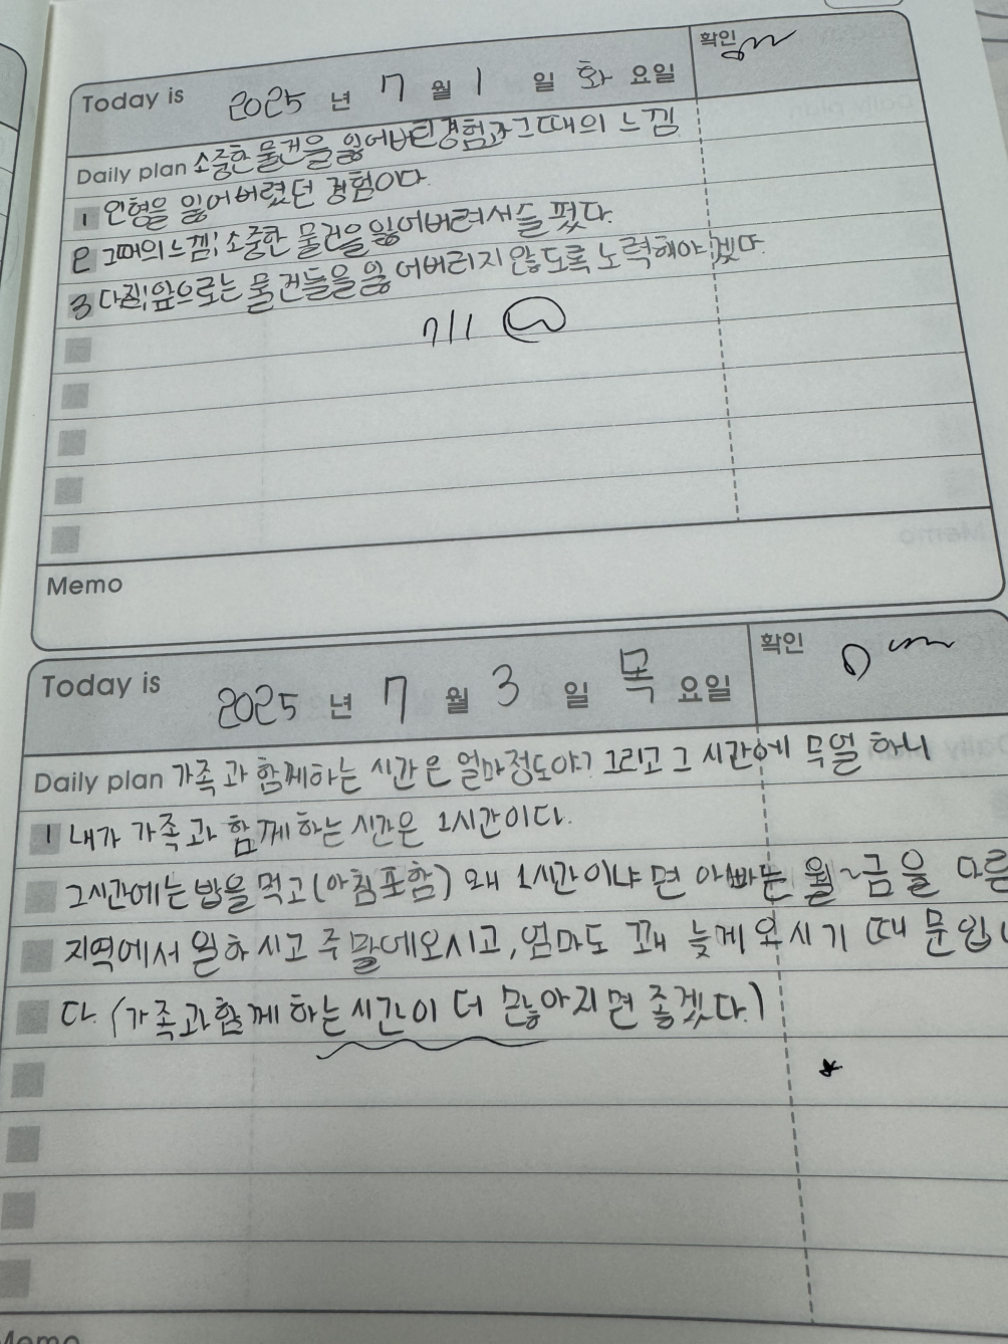 확인
Today is 2025 년 7 월 1 일 화 요일
Daily plan 소중한 물건을 잃어버린경험과 그때의 느낌
1 인형을 잃어버렸던 경험이다.
2 그때의느낌; 소중한 물건을잃어버려서슬펐다.
3 다짐;앞으로는 물건들을 잃어버리지 않도록 노력해야겠다.
7/1
Memo
확인
Today is 2025 년 7 월 3 일 목 요일
Daily plan 가족과 함께하는 시간은 얼마정도야? 그리고 그 시간에 무얼 하니
1 내가 가족과 함께하는 시간은 1시간이다.
그시간에는 밥을 먹고(아침포함) 왜 1시간이냐면 아빠는 월~금을 다른
지역에서 일하시고 주말에오시고, 엄마도 꽤 늦게오시기 때문입니
다. (가족과함께하는시간이 더 많아지면 좋겠다.)
Memo